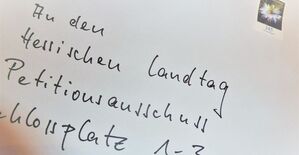 An den
Hessischen Landtag
Petitionsausschuss
chlossplatz 1-3